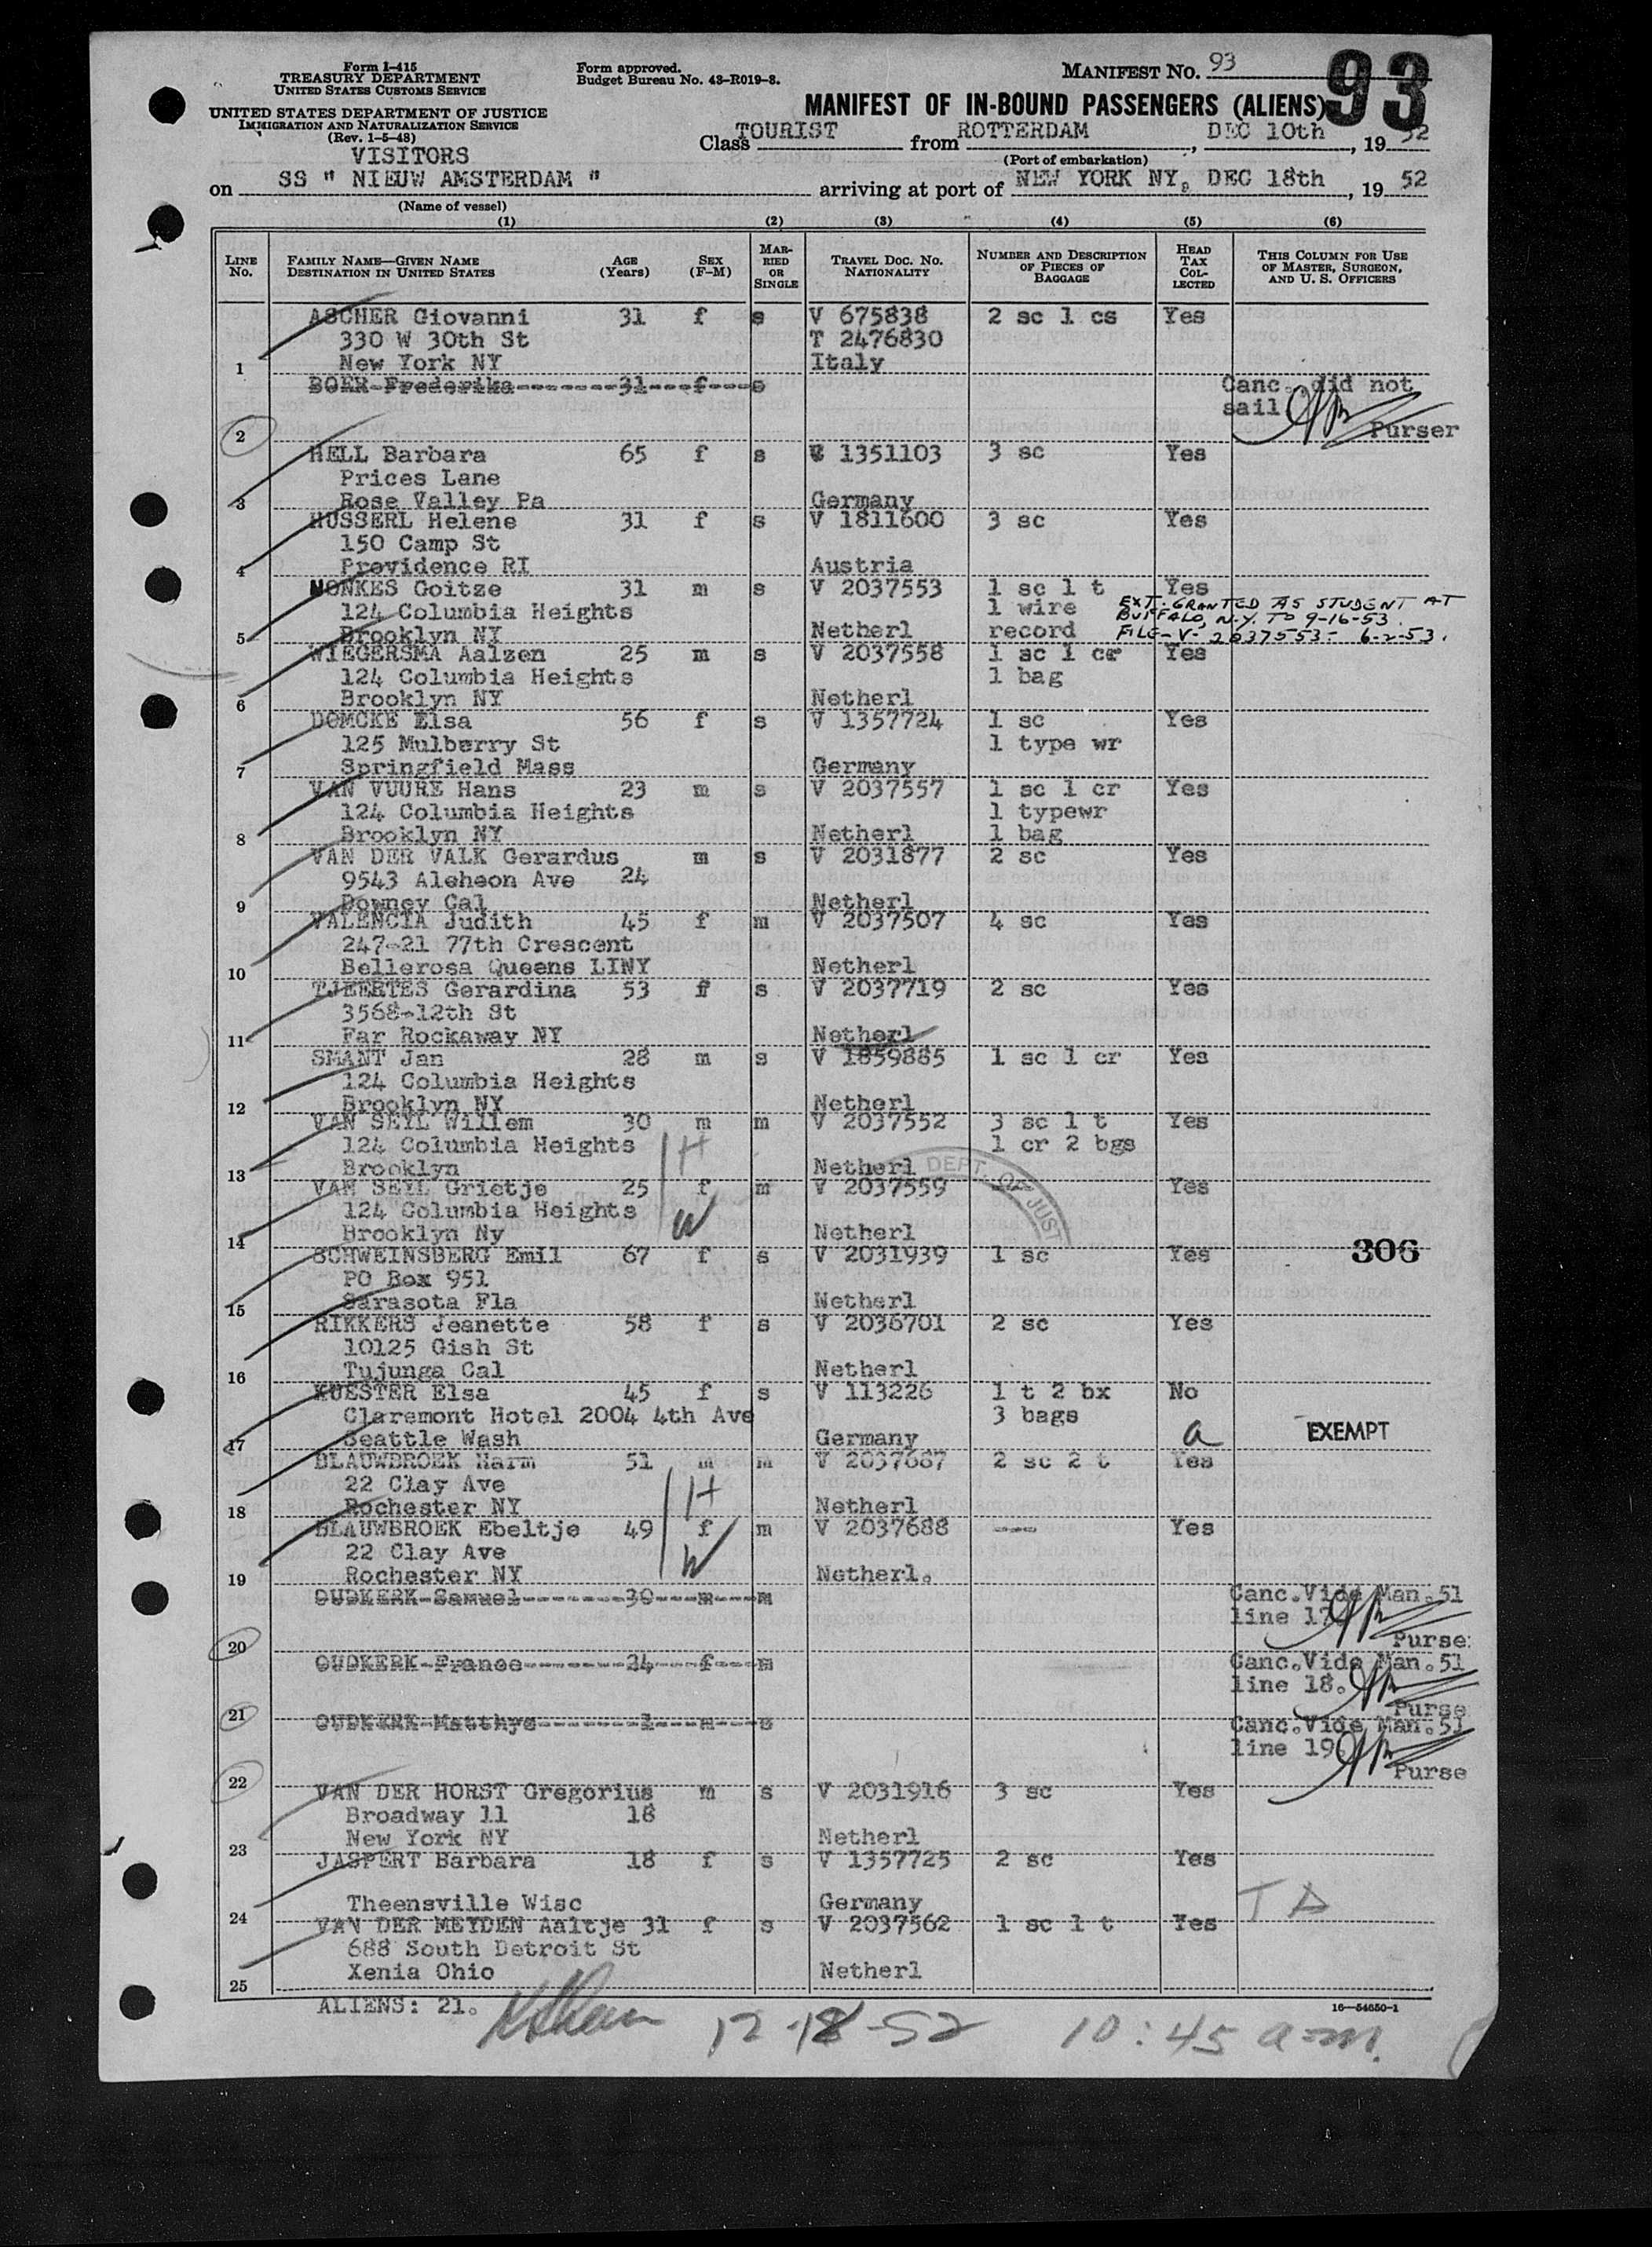 Form I-415
TREASURY DEPARTMENT
UNITED STATES CUSTOMS SERVICE
UNITED STATES DEPARTMENT OF JUSTICE
IMMIGRATION AND NATURALIZATION SERVICE
(Rev. 1-5-48)
Form approved.
Budget Bureau No. 43-R019-3.
MANIFEST NO. 93
93
MANIFEST OF IN-BOUND PASSENGERS (ALIENS)
Class TOURIST from ROTTERDAM, DEC 10th, 19 52
(Port of embarkation)
VISITORS
on SS " NIEUW AMSTERDAM " arriving at port of NEW YORK NY, DEC 18th, 19 52
(Name of vessel)
(1) (2) (3) (4) (5) (6)
LINE NO. FAMILY NAME—GIVEN NAME DESTINATION IN UNITED STATES AGE (Years) SEX (F-M) MARRIED OR SINGLE TRAVEL DOC. NO. NATIONALITY NUMBER AND DESCRIPTION OF PIECES OF BAGGAGE HEAD TAX COLLECTED THIS COLUMN FOR USE OF MASTER, SURGEON, AND U. S. OFFICERS
ASCHER Giovanni 31 f s V 675838 2 sc 1 cs Yes
330 W 30th St T 2476830
1 New York NY Italy
BOER Frederika-------31---f---s Canc. did not
sail
2 Purser
HELL Barbara 65 f s V 1351103 3 sc Yes
Prices Lane
3 Rose Valley Pa Germany
HUSSERL Helene 31 f s V 1811600 3 sc Yes
150 Camp St
4 Providence RI Austria
MONKES Goitze 31 m s V 2037553 1 sc 1 t Yes
124 Columbia Heights 1 wire EXT. GRANTED AS STUDENT AT
BUFFALO, N.Y. TO 9-16-53.
5 Brooklyn NY Netherl record FILE-V-2037553- 6-2-53.
WIEGERSMA Aalzen 25 m s V 2037558 1 sc 1 cr Yes
124 Columbia Heights 1 bag
6 Brooklyn NY Netherl
DOMCKE Elsa 56 f s V 1357724 1 sc Yes
125 Mulberry St 1 type wr
7 Springfield Mass Germany
VAN VUURE Hans 23 m s V 2037557 1 sc 1 cr Yes
124 Columbia Heights 1 typewr
8 Brooklyn NY Netherl 1 bag
VAN DER VALK Gerardus m s V 2031877 2 sc Yes
9543 Aleheon Ave 24
9 Downey Cal Netherl
VALENCIA Judith 45 f m V 2037507 4 sc Yes
247-21 77th Crescent
10 Bellerosa Queens LINY Netherl
TJEERTES Gerardina 53 f s V 2037719 2 sc Yes
3568-12th St
11 Far Rockaway NY Netherl
SMANT Jan 28 m s V 1859885 1 sc 1 cr Yes
124 Columbia Heights
12 Brooklyn NY Netherl
VAN SEYL Willem 30 m m V 2037552 3 sc 1 t Yes
124 Columbia Heights H 1 cr 2 bgs
13 Brooklyn Netherl
DEPT. OF JUST
VAN SEYL Grietje 25 f m V 2037559 --- Yes
124 Columbia Heights W
14 Brooklyn Ny Netherl
SCHWEINSBERG Emil 67 f s V 2031939 1 sc Yes 306
PO Box 951
15 Sarasota Fla Netherl
RIKKERS Jeanette 58 f s V 2036701 2 sc Yes
10125 Gish St
16 Tujunga Cal Netherl
KUESTER Elsa 45 f s V 113226 1 t 2 bx No
Claremont Hotel 2004 4th Ave 3 bags a EXEMPT
17 Seattle Wash Germany
BLAUWBROEK Harm 51 m m V 2037687 2 sc 2 t Yes
22 Clay Ave H
18 Rochester NY Netherl
BLAUWBROEK Ebeltje 49 f m V 2037688 --- Yes
22 Clay Ave W
19 Rochester NY Netherl.
OUDKERK-Samuel-------30---m---m Canc.Vide Man.51
line 17
20 Purse
OUDKERK-France-------24---f---m Canc.Vide Man.51
line 18.
21 Purse
OUDKERK-Matthys-------1---m---s Canc.Vide Man.51
line 19.
22 Purse
VAN DER HORST Gregorius m s V 2031916 3 sc Yes
Broadway 11 18
23 New York NY Netherl
JASPERT Barbara 18 f s V 1357725 2 sc Yes
24 Theensville Wisc Germany T D
VAN DER MEYDEN Aaltje 31 f s V 2037562 1 sc 1 t Yes
688 South Detroit St
25 Xenia Ohio Netherl
ALIENS: 21. 12-18-52 10:45 a.m.
16—54650-1